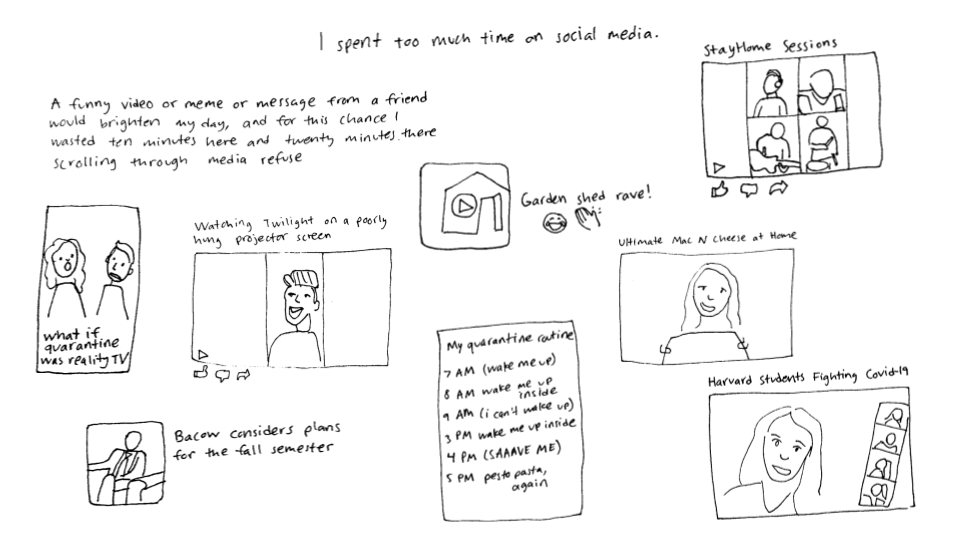 I spent too much time on social media.
StayHome Sessions
A funny video or meme or message from a friend
would brighten my day, and for this chance I
wasted ten minutes here and twenty minutes there
scrolling through media refuse
Garden shed rave!
Watching Twilight on a poorly
hung projector screen
Ultimate Mac N Cheese at Home
what if
quarantine
was reality TV
My quarantine routine
7 AM (wake me up)
8 AM wake me up
inside
9 AM (i can't wake up)
3 PM wake me up inside
4 PM (SAAAVE ME)
5 PM pesto pasta,
again
Harvard Students Fighting Covid-19
Bacow considers plans
for the fall semester